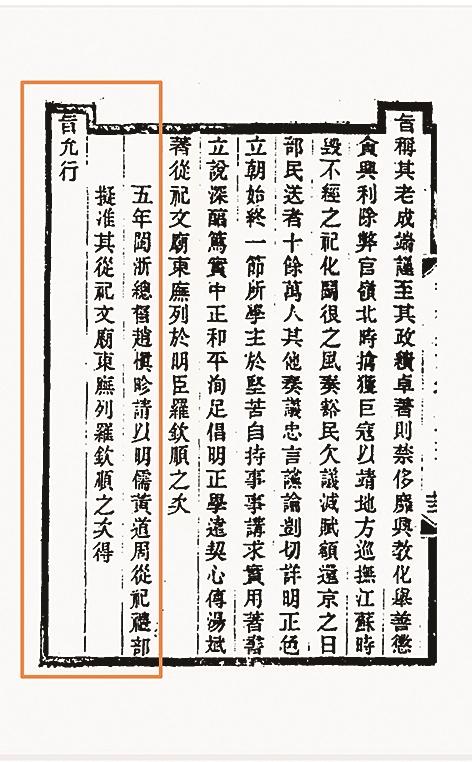 旨稱其老成端謹至其政績卓著則禁侈靡興教化舉善懲
貪興利除弊官嶺北時擒獲巨寇以靖地方巡撫江蘇時
毀不經之祀化鬬很之風奏豁民欠議減賦額還京之日
部民送者十餘萬人其他奏議忠言讜論剴切詳明正色
立朝始終一節所學主於堅苦自持事事講求實用著書
立說深醇篤實中正和平洵足倡明正學遠契心傳湯斌
著從祀文廟東廡列於明臣羅欽順之次
五年閩浙總督趙慎畛請以明儒黃道周從祀禮部
擬准其從祀文廟東廡列羅欽順之次得
旨允行